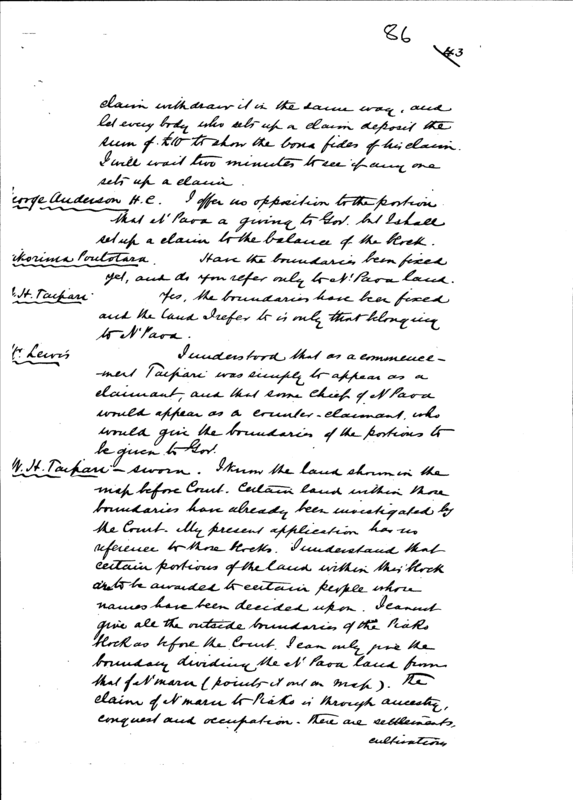 86
43
claim withdraw it in the same way, and
let every body who sets up a claim deposit the
sum of £10 to show the bona fides of his claim.
I will wait two minutes to see if any one
sets up a claim.
orge Anderson H.C. I offer no opposition to the portion
that N' Paoa a giving to Gov. but I shall
set up a claim to the balance of the block.
korima Poutotara. Have the boundaries been fixed
yet, and do you refer only to N' Paoa land.
H. Taipari. Yes, the boundaries have been fixed
and the land I refer to is only that belonging
to N' Paoa.
Lewis I understood that as a commence-
ment Taipari was simply to appear as a
claimant, and that some chief of N Paoa
would appear as a counter-claimant, who
would give the boundaries of the portions to
be given to Gov.
W. H. Taipari - sworn. I know the land shown in the
map before Court. Certain land within those
boundaries have already been investigated by
the Court. My present application has no
reference to those blocks. I understand that
certain portions of the land within this block
are to be awarded to certain people whose
names have been decided upon. I cannot
give all the outside boundaries of the Piako
block as before the Court. I can only give the
boundary dividing the N' Paoa land from
that of N' maru (points it out on map). The
claim of N maru to Piako is through ancestry,
conquest and occupation - there are settlements,
cultivations